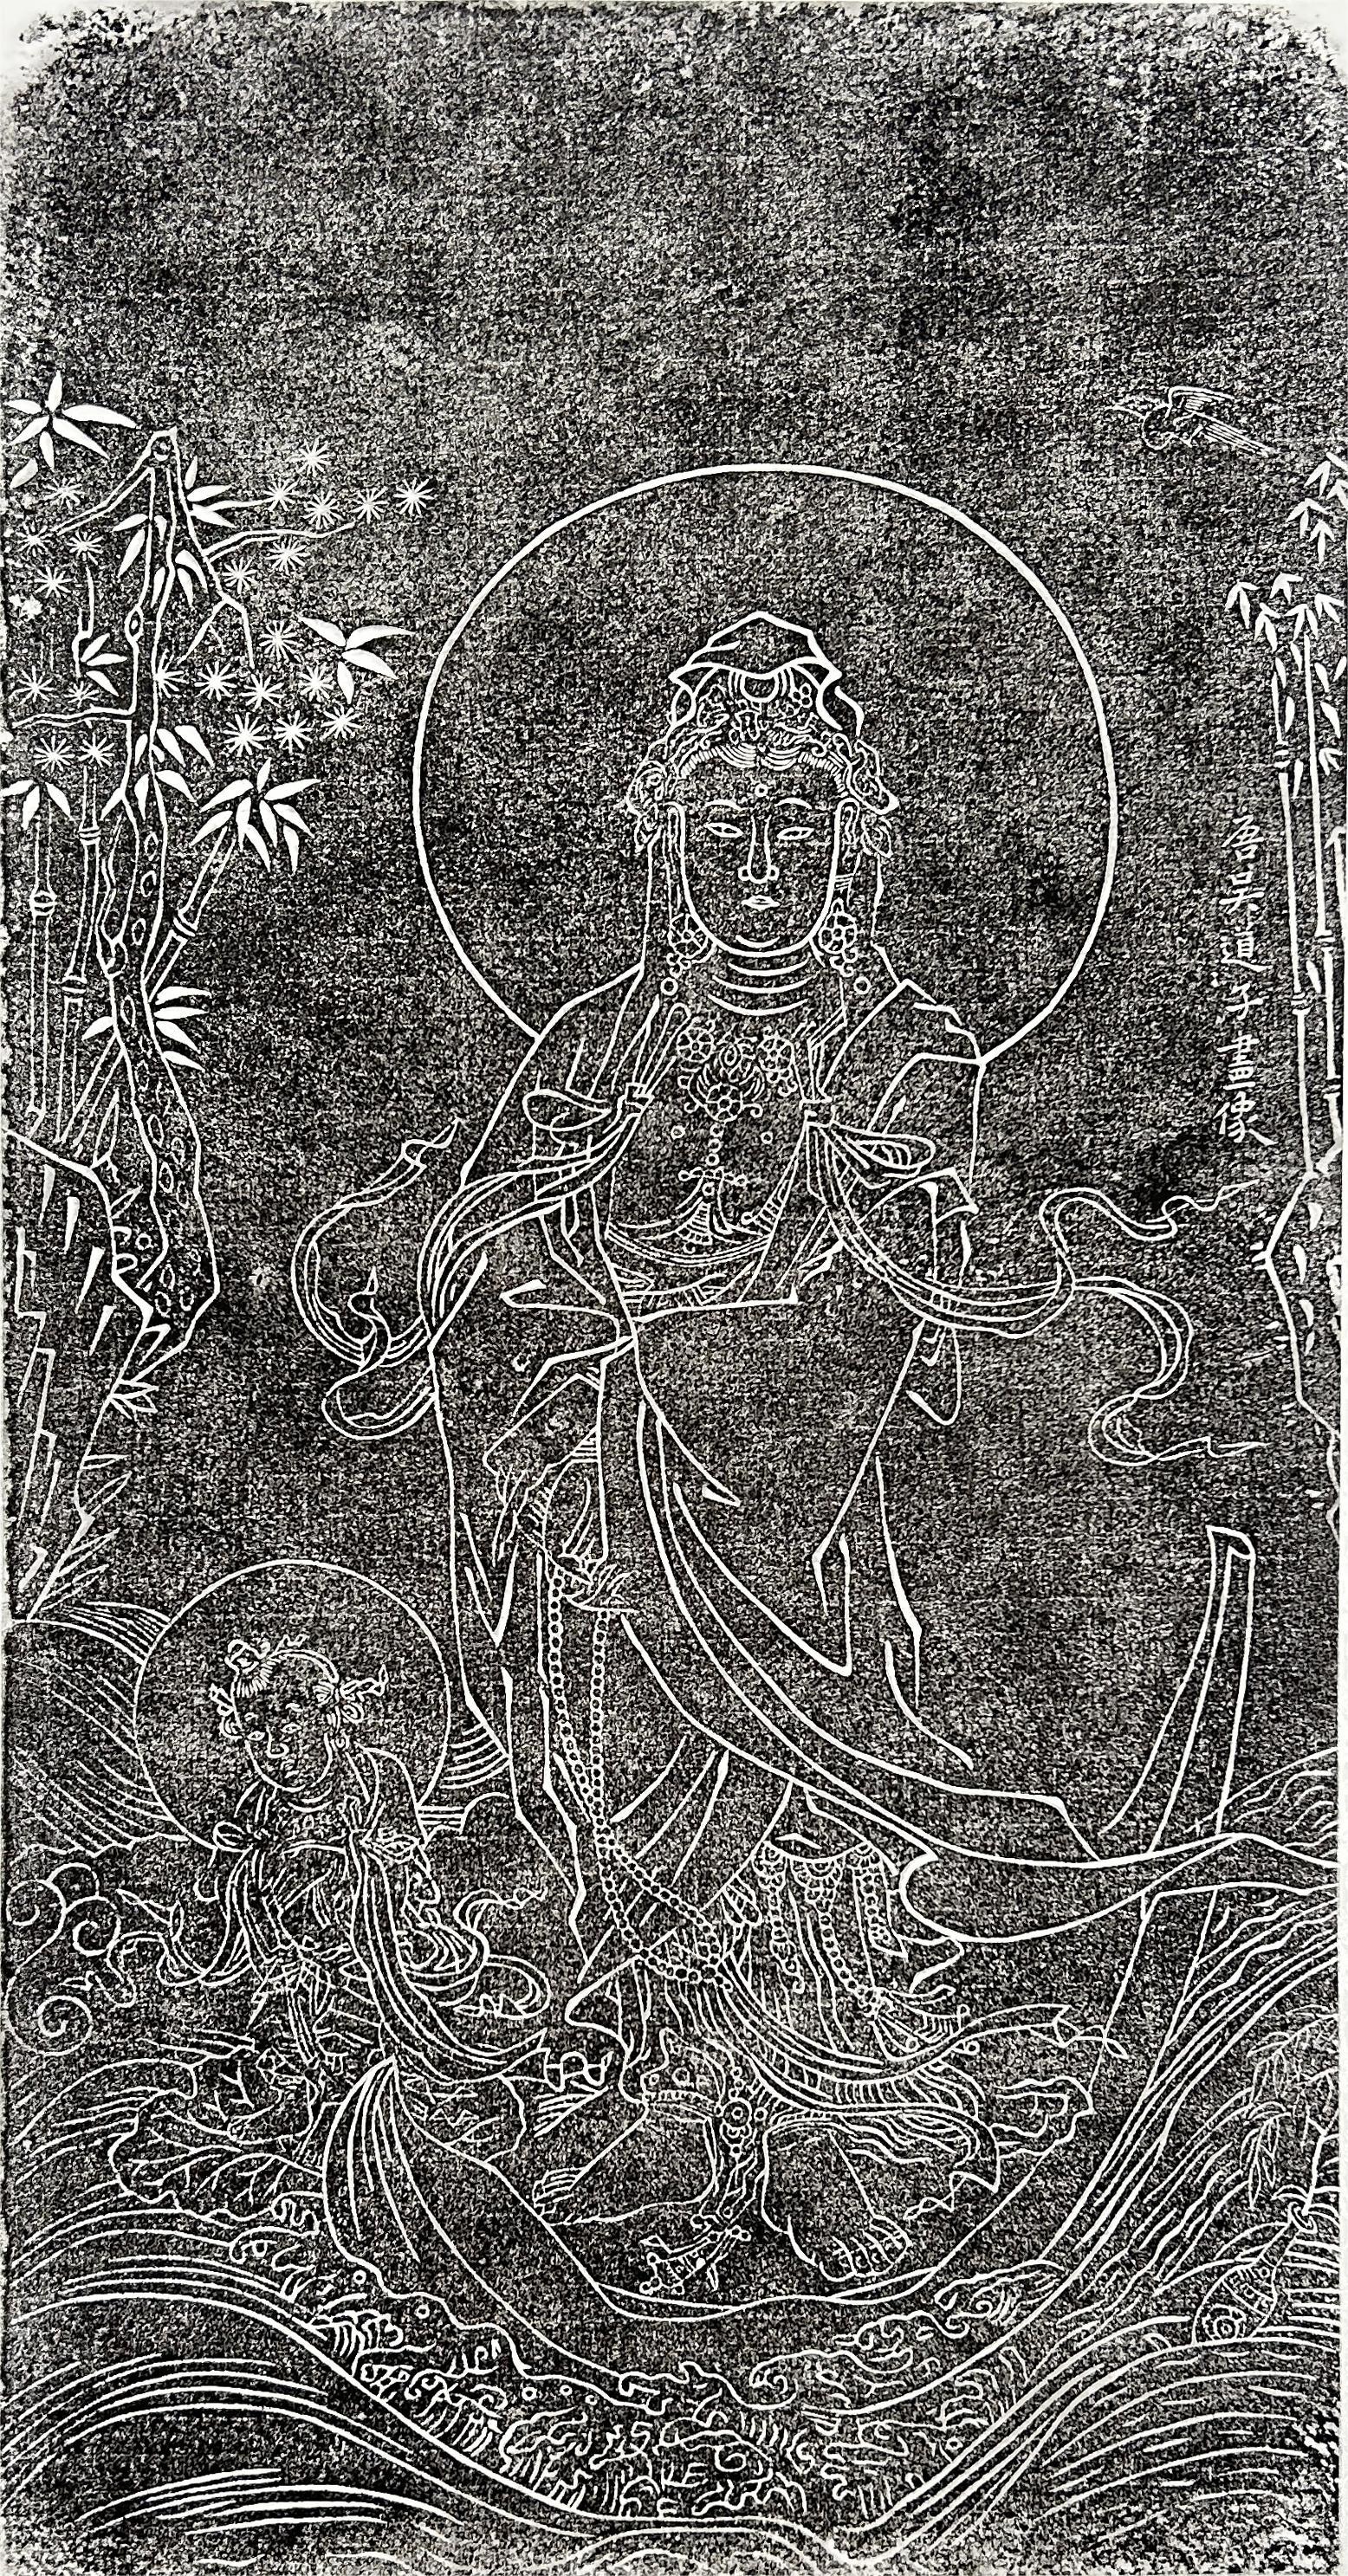 唐吳道子畫像